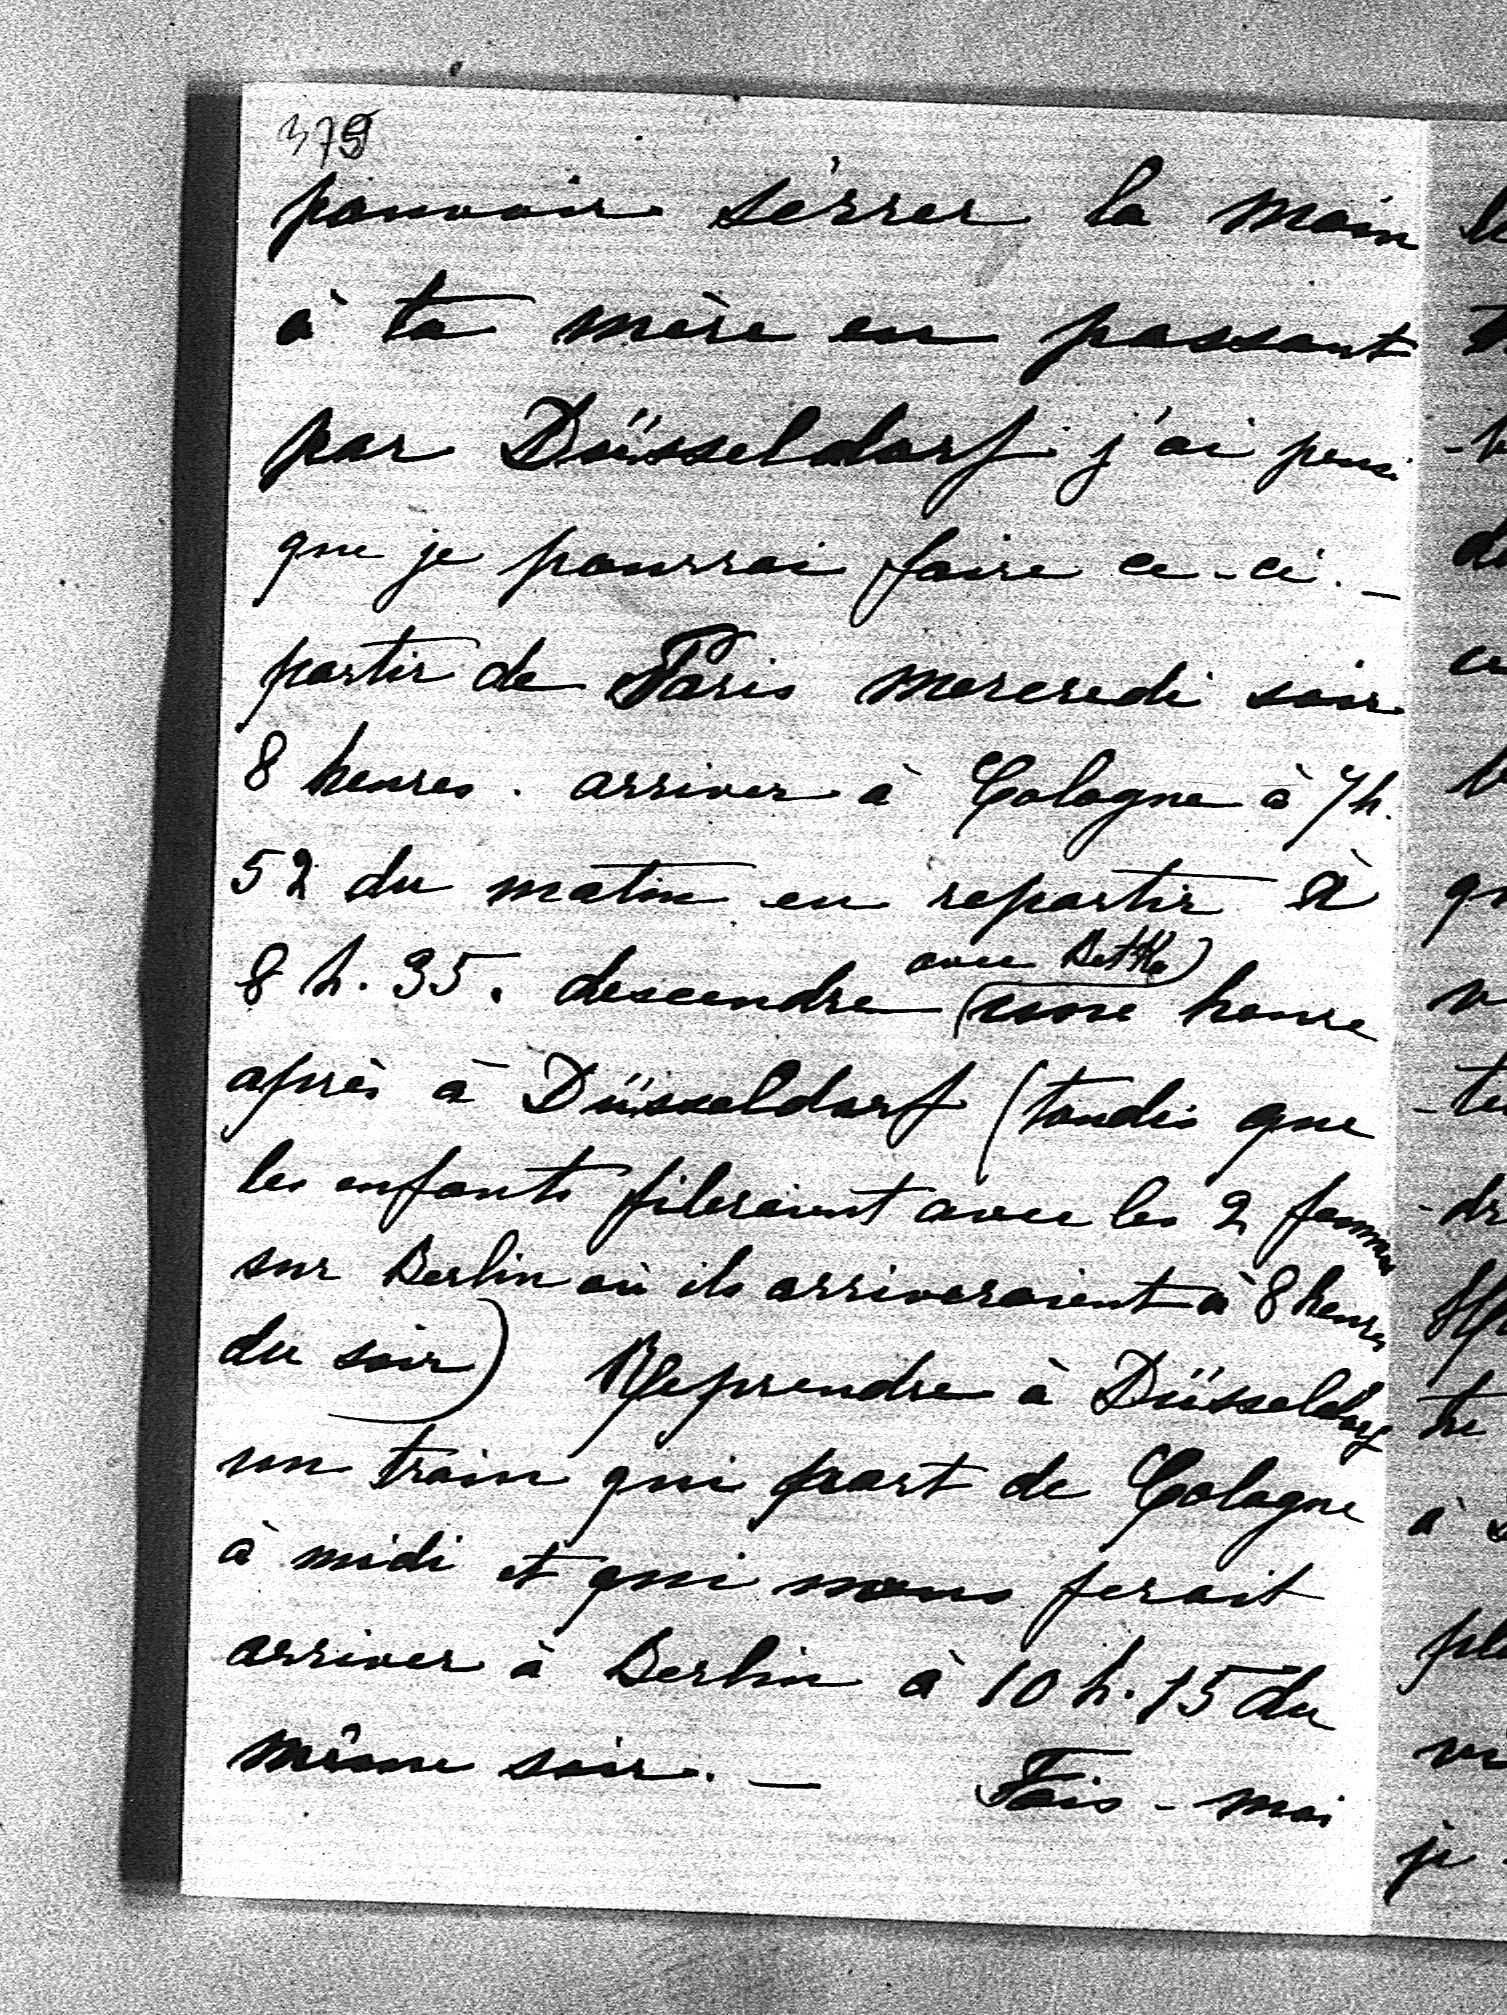 379
pouvoir sérrer la main
à ta mère en passant
par Düsseldorf j'ai pensé
que je pourrai faire ce-ci. —
partir de Paris mercredi soir
8 heures. arriver à Cologne à 7h.
52 du matin en repartir à
avec Bettka)
8 h. 35. descendre (une heure
après à Düsseldorf (tandis que
les enfants fileraient avec les 2 femmes
sur Berlin où ils arriveraient à 8 heures
du soir) Reprendre à Düsseldorf
un train qui part de Cologne
à midi et qui nous ferait
arriver à Berlin à 10 h. 15 du
même soir. — Fais-moi